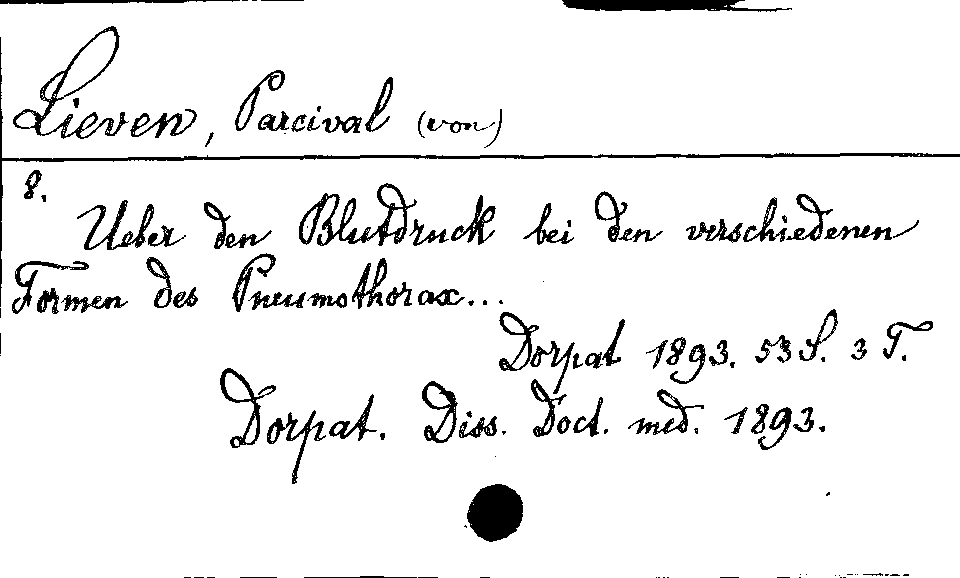 Lieven, Parcival (von)
8.
Ueber den Blutdruck bei den verschiedenen
Formen des Pneumothorax...
Dorpat 1893. 53 S. 3 T.
Dorpat. Diss. Doct. med. 1893.